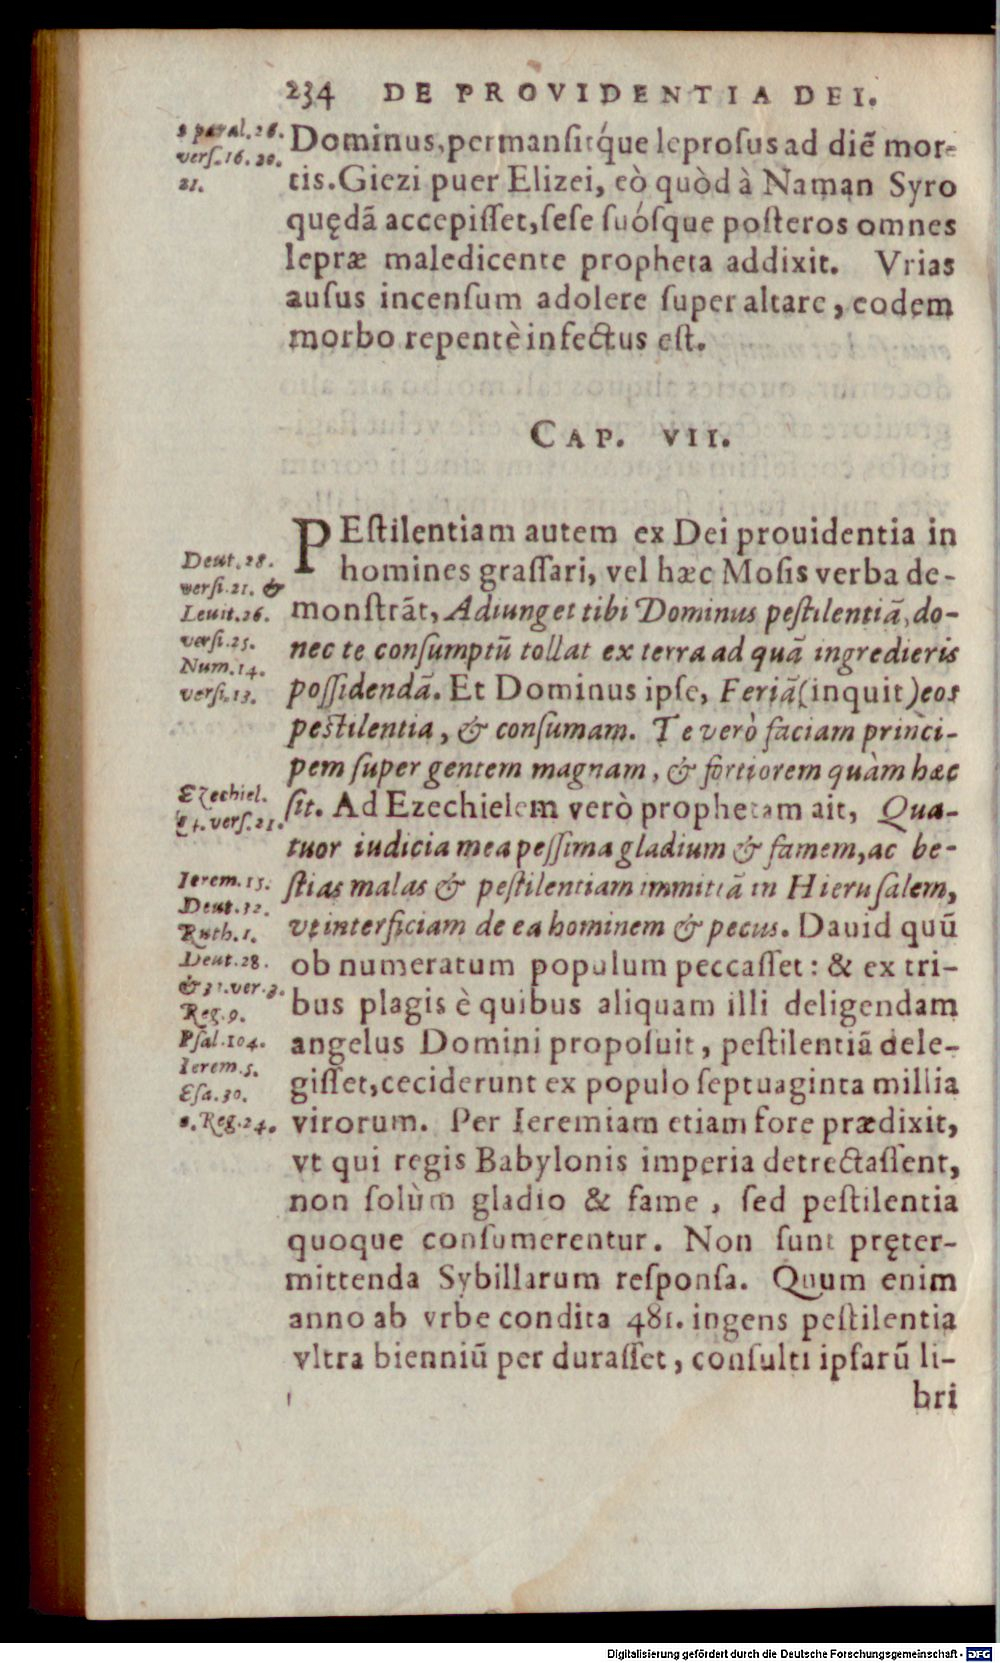 234 DE PROVIDENTIA DEI.
2 paral. 26.
verſ. 16. 20.
21.
Dominus, permanſitq́ue leproſus ad diē mor-
tis. Giezi puer Elizei, eò quòd à Naman Syro
quędā accepiſſet, ſeſe ſuóſque poſteros omnes
lepræ maledicente propheta addixit. Vrias
auſus incenſum adolere ſuper altare, eodem
morbo repentè infectus eſt.
CAP. VII.
PEſtilentiam autem ex Dei prouidentia in
homines graſſari, vel hæc Moſis verba de-
monſtrāt, Adiunget tibi Dominus peſtilentiā, do-
nec te conſumptū tollat ex terra ad quā ingredieris
poſſidendā. Et Dominus ipſe, Feriā (inquit) eos
peſtilentia, & conſumam. Te verò faciam princi-
pem ſuper gentem magnam, & fortiorem quàm hæc
ſit. Ad Ezechielem verò prophetam ait, Qua-
tuor iudicia mea peſſima gladium & famem, ac be-
ſtias malas & peſtilentiam immittā in Hieruſalem,
vt interficiam de ea hominem & pecus. Dauid quū
ob numeratum populum peccaſſet: & ex tri-
bus plagis è quibus aliquam illi deligendam
angelus Domini propoſuit, peſtilentiā dele-
giſſet, ceciderunt ex populo ſeptuaginta millia
virorum. Per Ieremiam etiam fore prædixit,
vt qui regis Babylonis imperia detrectaſſent,
non ſolùm gladio & fame, ſed peſtilentia
quoque conſumerentur. Non ſunt pręter-
mittenda Sybillarum reſponſa. Quum enim
anno ab vrbe condita 481. ingens peſtilentia
vltra bienniū per duraſſet, conſulti ipſarū li-
bri
Deut. 28.
verſi. 21. &
Leuit. 26.
verſi. 25.
Num. 14.
verſi. 13.
Ezechiel.
14. verſ. 21.
Ierem. 15.
Deut. 32.
Ruth. 1.
Deut. 28.
& 31. ver. 3.
Reg. 9.
Pſal. 104.
Ierem. 5.
Eſa. 30.
2. Reg. 24.
Digitalisierung gefördert durch die Deutsche Forschungsgemeinschaft - DFG